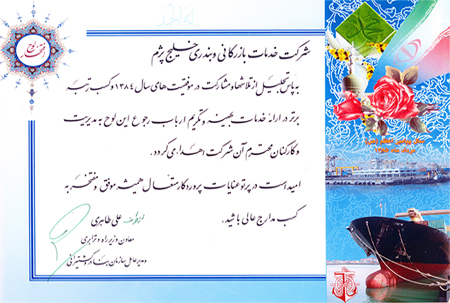 شرکت خدمات بازرگانی وبندری خلیج پژم
به پاس تجلیل از تلاشها و مشارکت در موفقیت های سال ۱۳۸۴ و کسب رتبه
برتر در ارائه خدمات بهینه و تکریم ارباب رجوع این لوح به مدیریت
و کارکنان محترم آن شرکت اهداء می گردد.
امید است در پرتو عنایات پروردگار متعال همیشه موفق و مفتخر به
کسب مدارج عالی باشید.
علی طاهری
معاون وزیر راه و ترابری
و مدیرعامل سازمان بنادر و کشتیرانی